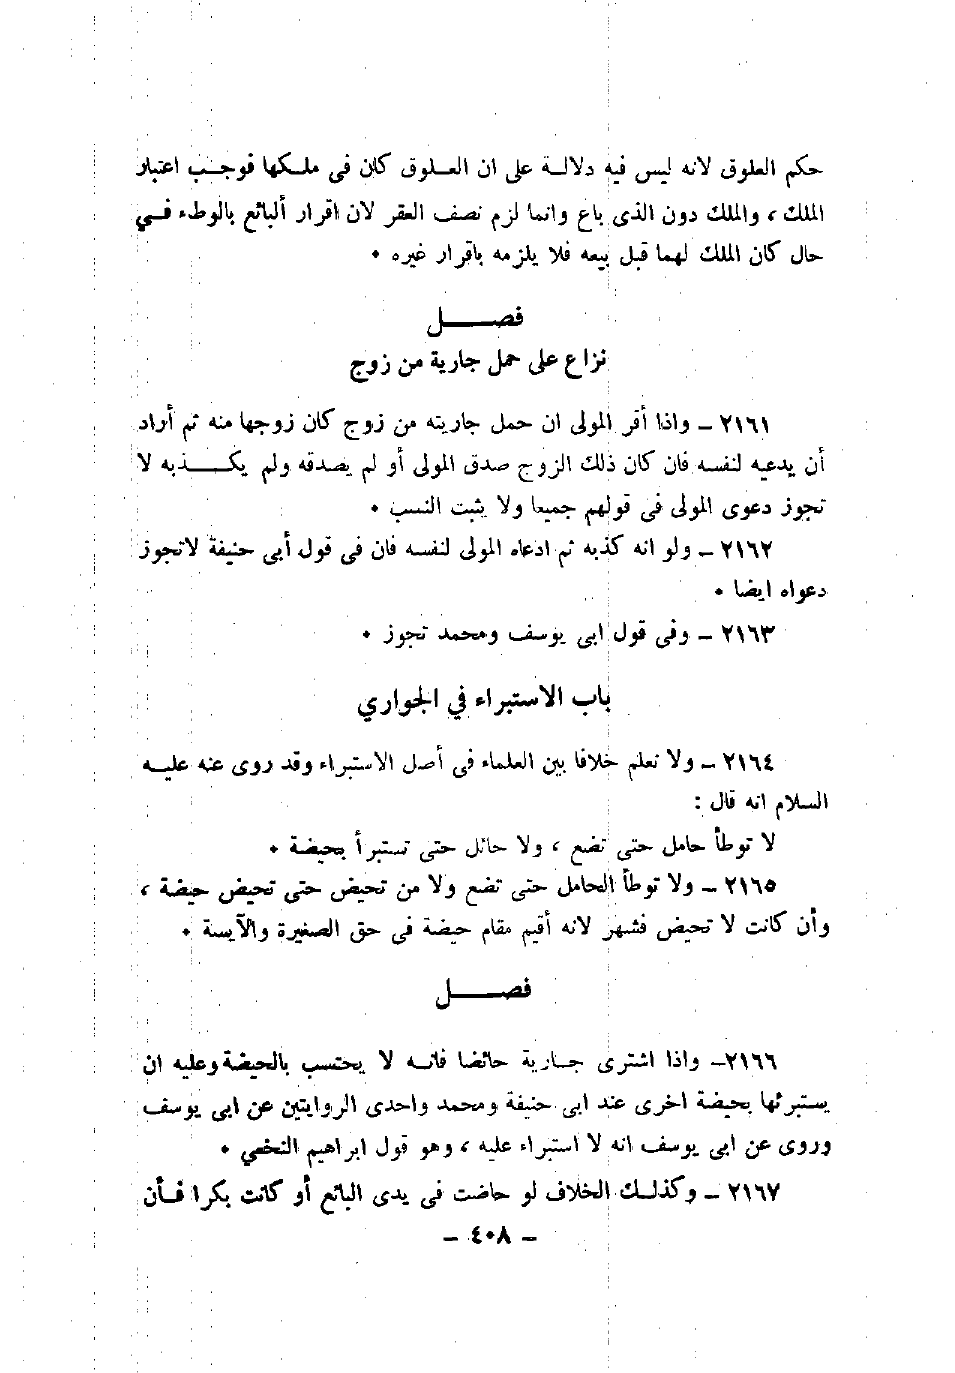 حكم العلوق لانه ليس فيه دلالـة على ان العـلوق كان فى ملـكها فوجـب اعتبار
الملك ، والملك دون الذى باع وانما لزم نصف العقر لان اقرار ألبائع بالوطء فـي
حال كان الملك لهما قبل بيعه فلا يلزمه باقرار غيره ٠
فصـــــل
نزاع على حمل جارية من زوج
٢١٦١ ــ واذا أقر المولى ان حمل جاريته من زوج كان زوجها منه ثم أراد
أن يدعيه لنفسه فان كان ذلك الزوج صدق المولى أو لم يصدقه ولم يكـــــذبه لا
تجوز دعوى المولى فى قولهم جميعا ولا يثبت النسب ٠
٢١٦٢ ــ ولو انه كذبه ثم ادعاه المولى لنفسه فان فى قول أبى حنيفة لاتجوز
دعواه ايضا ٠
٢١٦٣ ــ وفى قول ابى يوسف ومحمد تجوز ٠
باب الاستبراء في الجواري
٢١٦٤ ــ ولا نعلم خلافا بين العلماء فى أصل الاستبراء وقد روى عنه عليـه
السلام انه قال :
لا توطأ حامل حتى تضع ، ولا حائل حتى تستبرأ بحيضة ٠
٢١٦٥ ــ ولا توطأ الحامل حتى تضع ولا من تحيض حتى تحيض حيضة ،
وأن كانت لا تحيض فشهر لانه أقيم مقام حيضة فى حق الصغيرة والآيسة ٠
فصـــــل
٢١٦٦ــ واذا اشترى جـارية حائضا فانـه لا يحتسب بالحيضة وعليه ان
يستبرئها بحيضة اخرى عند ابى حنيفة ومحمد واحدى الروايتين عن ابى يوسف
وروى عن ابى يوسف انه لا استبراء عليه ، وهو قول ابراهيم النخعي ٠
٢١٦٧ ــ وكذلـك الخلاف لو حاضت فى يدى البائع أو كانت بكرا فـأن
ــ ٤٠٨ ــ